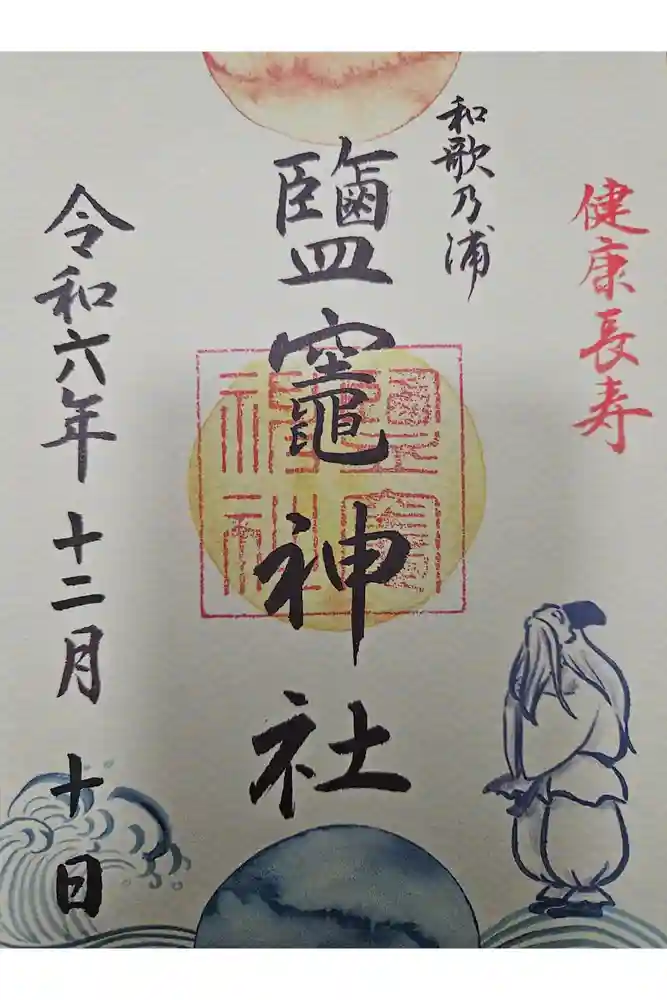 健康長寿
和歌乃浦
鹽竈神社
令和六年 十二月 十日